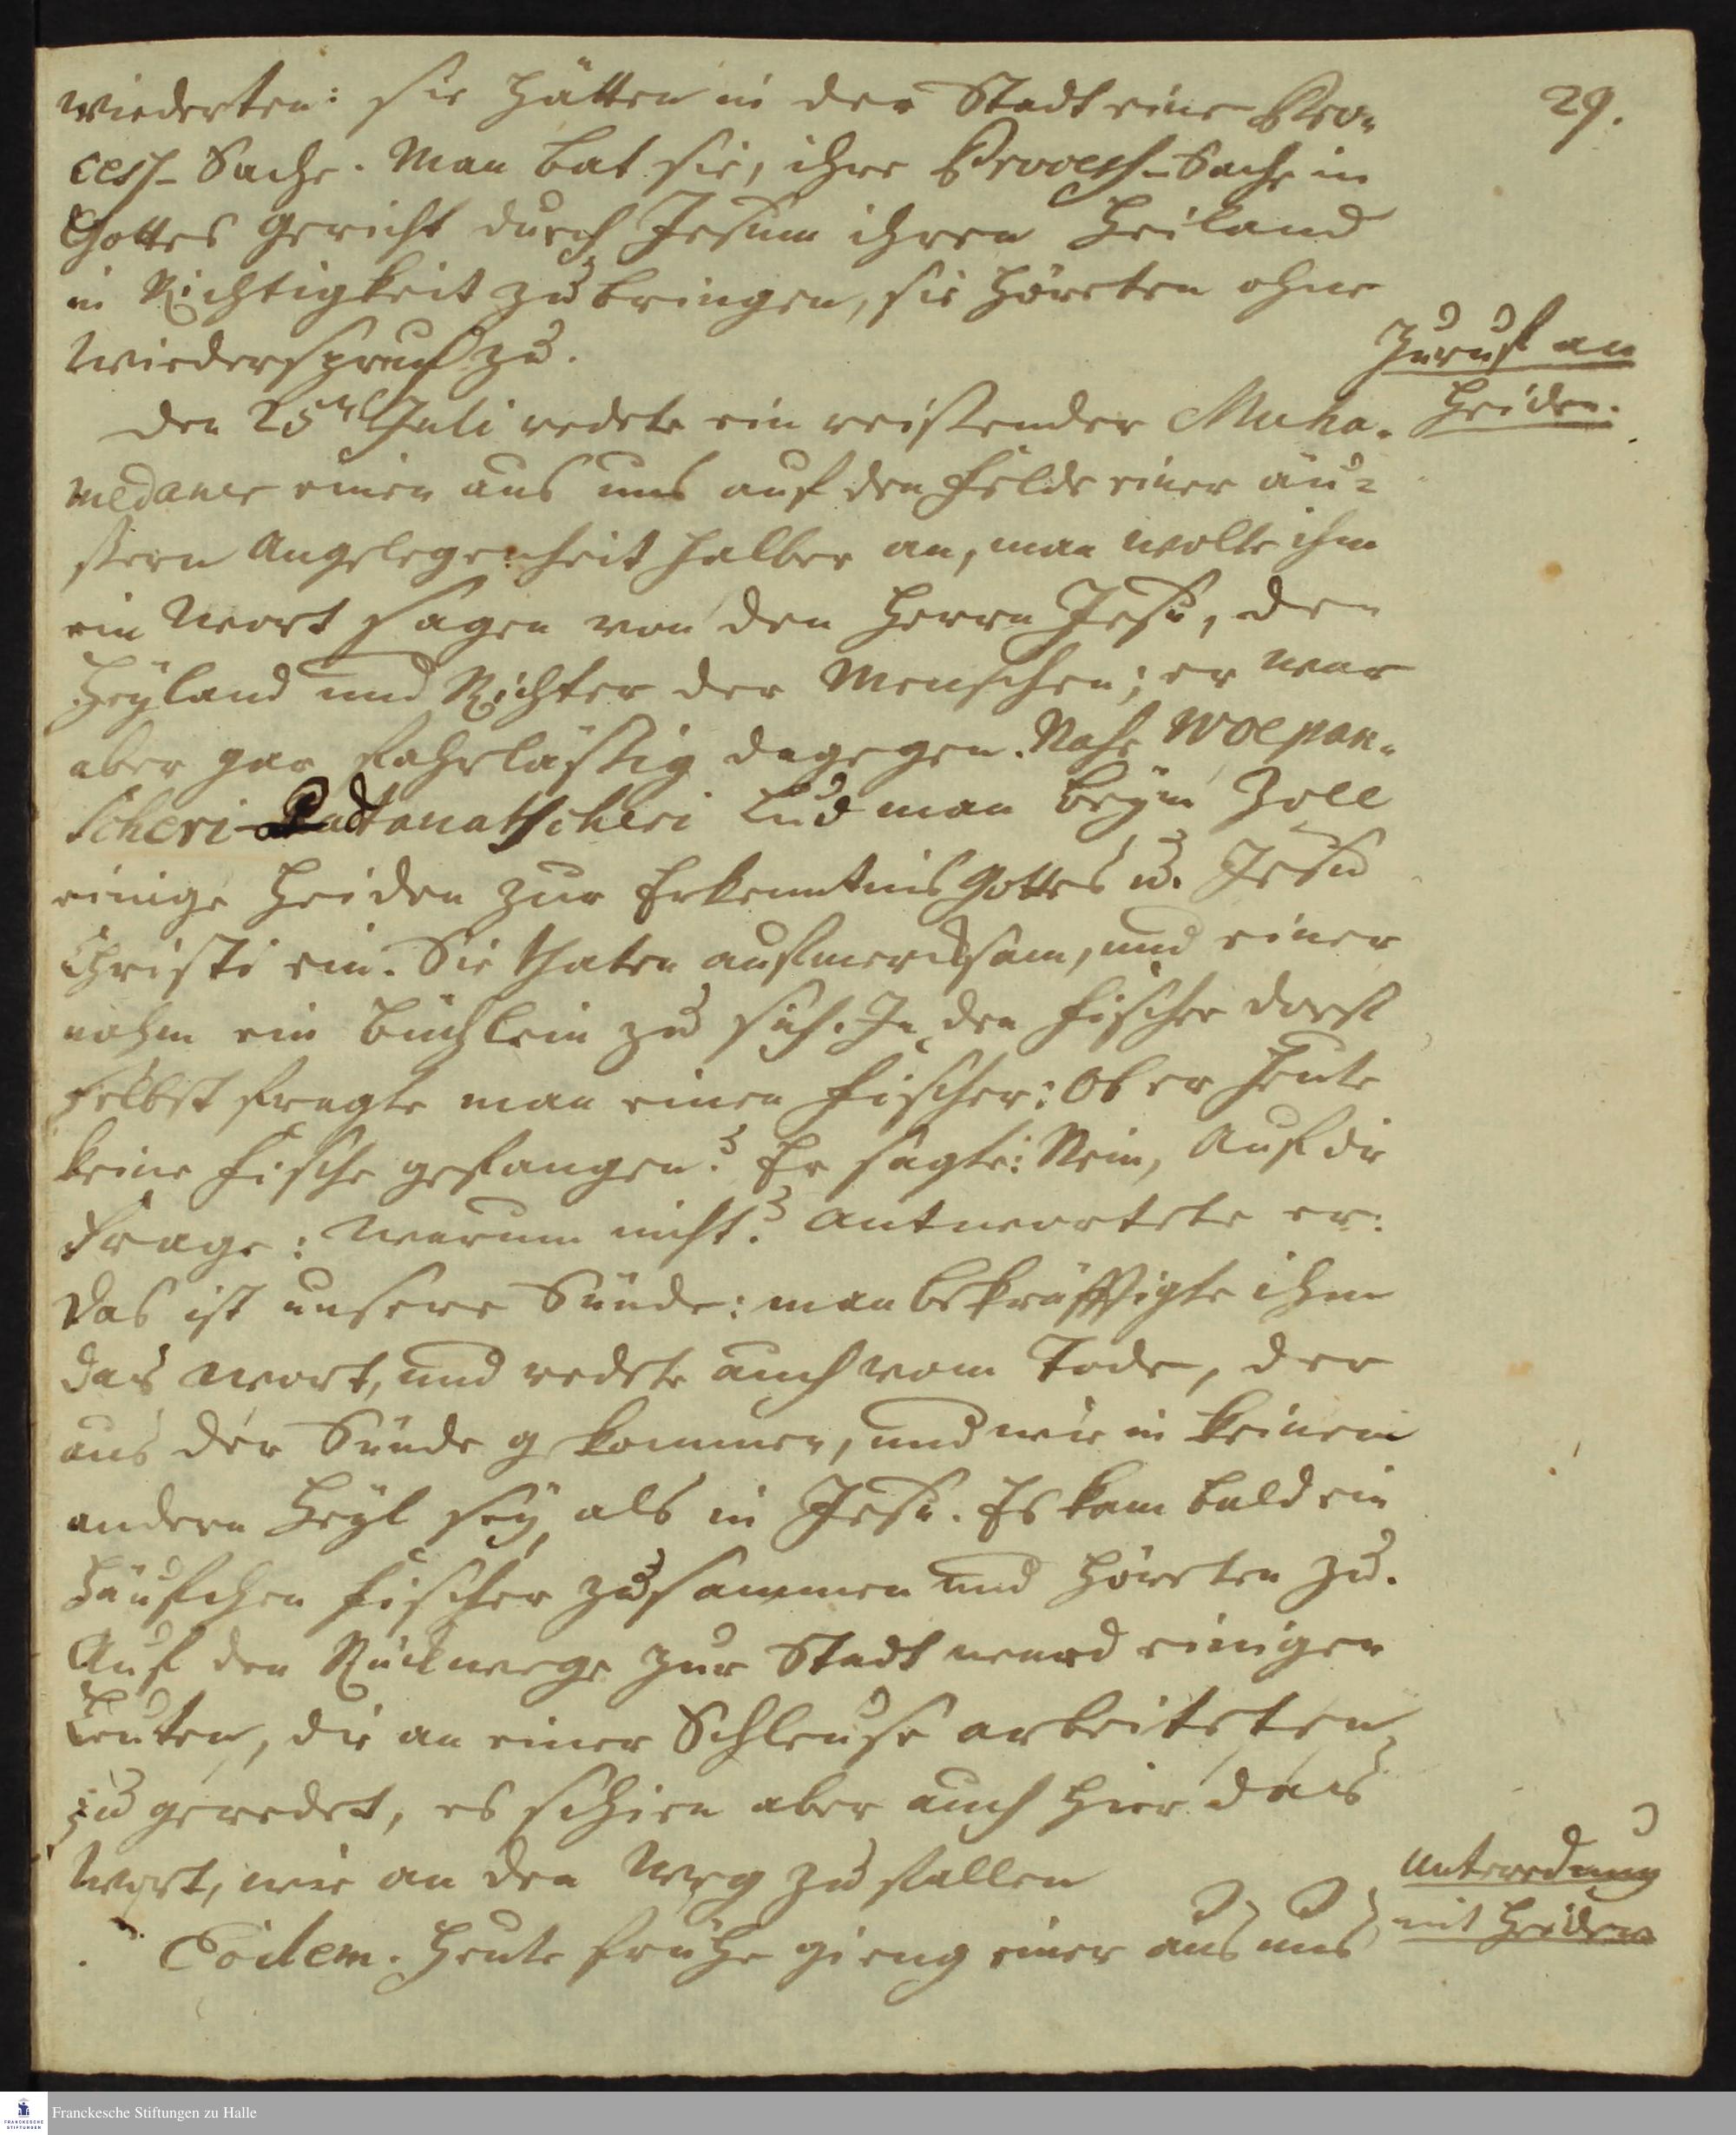 29.
wiederten: sie hätten in der Stadt eine Pro-
cess-Sache. Man bat sie, ihre Process-Sache in
Gottes Gericht durch Jesum ihren Heiland
in Richtigkeit zu bringen, sie höreten ohne
Wiederspruch zu.
Zuruf an
Heiden.
Den 25n Juli redete ein reißender Muha-
medaner einen aus uns auf den Felde einer äu-
ßern Angelegenheit halber an, man wolte ihm
ein Wort sagen von den Herrn Jesu, den
Heyland und Richter der Menschen; er war
aber gar fahrläßig dagegen. Nahe Woepan-
scheri-Padtanatscheri lud man beym Zoll
einige Heiden zur Erkenntnis Gottes u. Jesu
Christi ein. Sie thaten aufmercksam, und einer
nahm ein Büchlein zu sich. In den Fischer dorf
selbst fragte man einen Fischer: Ob er heute
keine Fische gefangen? Er sagte: Nein, Auf die
Frage: Warum nicht? Antwortete er:
Das ist unsere Sünde: man bekräfftigte ihm
das Wort, und redete auch vom Tode, der
aus der Sünde gekommen, und wie in keinem
andern Heyl sey, als in Jesu. Es kam bald ein
Häufchen Fischer zusammen und höreten zu.
Auf den Rückwege zur Stadt ward einigen
Leuten, die an einer Schleuse arbeiteten,
zu geredet, es schien aber auch hier das
Wort, wie an den Weg zu fallen
Unterredung
mit Heiden
Eodem. Heute frühe gieng einer aus uns
Franckesche Stiftungen zu Halle